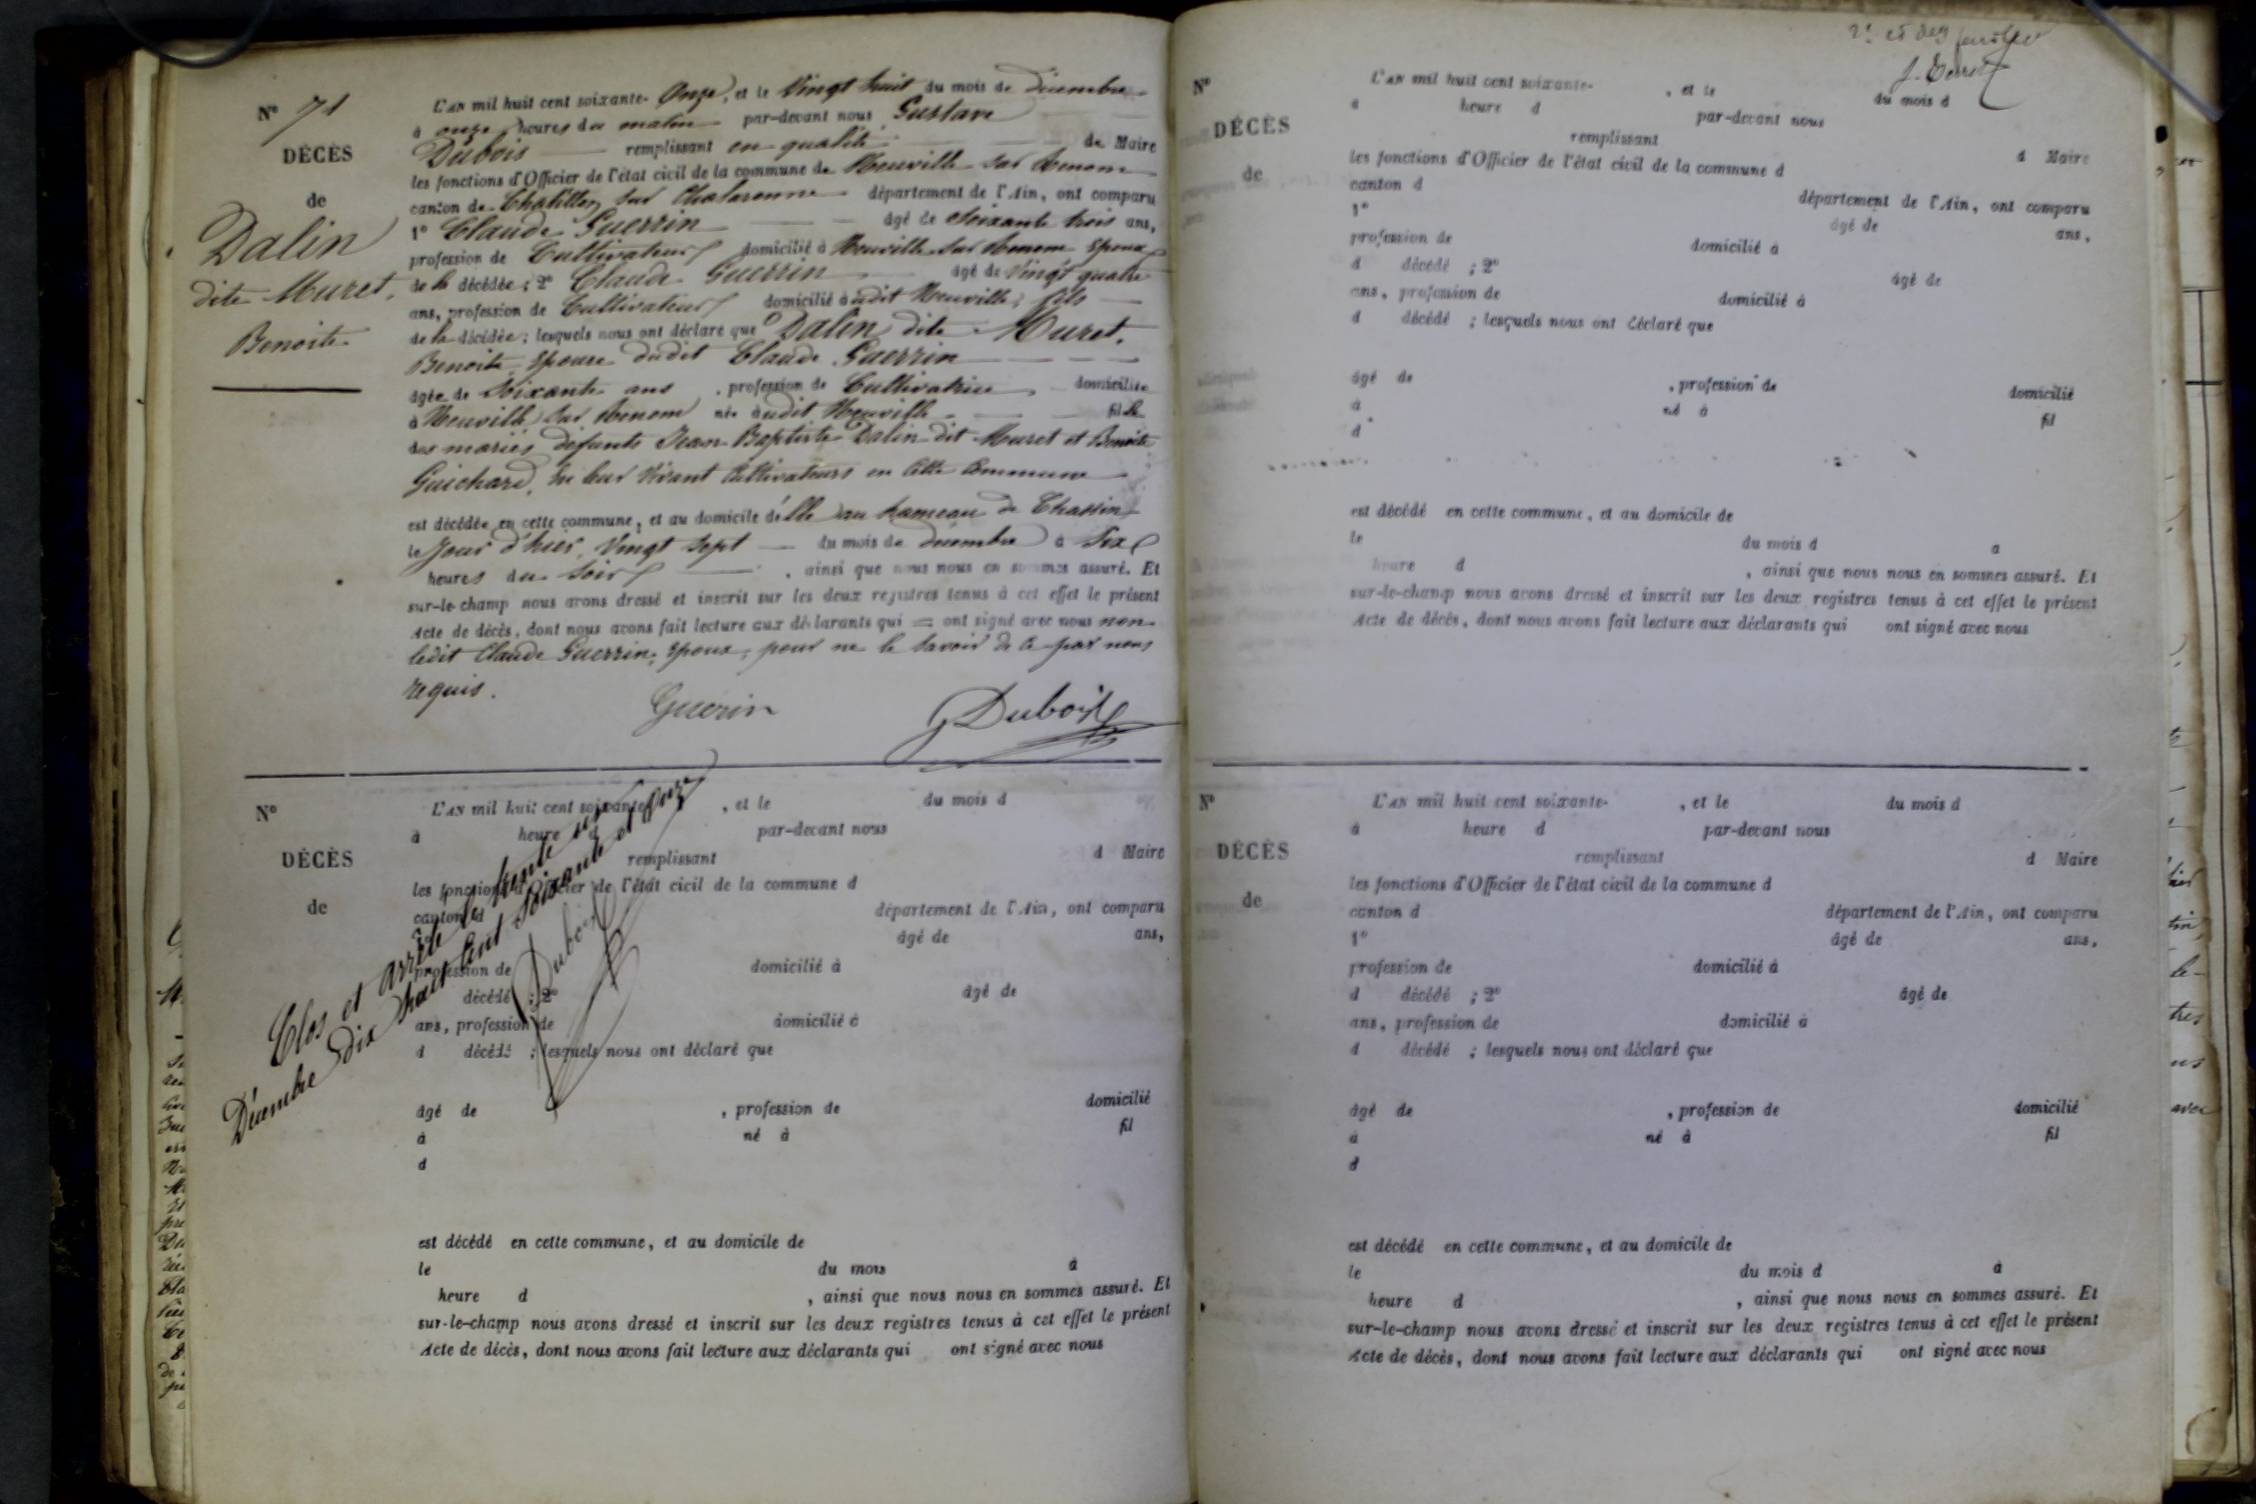 N° 71
DÉCÈS
de
Dalin
dite Muret,
Benoite.
L'AN mil huit cent soixante-Onze, et le Vingt huit du mois de décembre
à onze heures du matin par-devant nous Gustave
Dubois remplissant en qualité de Maire
les fonctions d'Officier de l'état civil de la commune de Neuville sur Renom
canton de Chatillon sur Chalaronne département de l'Ain, ont comparu
1° Claude Guerrin âgé de Soixante trois ans,
profession de Cultivateur domicilié à Neuville sur Renom Epoux
de la décédée ; 2° Claude Guerrin âgé de Vingt quatre
ans, profession de Cultivateur domicilié audit Neuville, fils
de la décédée ; lesquels nous ont déclaré que Dalin dite Muret,
Benoite, Epouse dudit Claude Guerrin
âgée de Soixante ans , profession de Cultivatrice domiciliée
à Neuville sur Renom née audit Neuville fille
des mariés défunts Jean-Baptiste Dalin dit Muret et Benoite
Guichard, de leur vivant Cultivateurs en cette Commune
est décédée en cette commune, et au domicile d'elle au hameau de Chassin
le Jour d'hier, Vingt Sept du mois de décembre à Six
heures du Soir , ainsi que nous nous en sommes assuré. Et
sur-le-champ nous avons dressé et inscrit sur les deux registres tenus à cet effet le présent
Acte de décès, dont nous avons fait lecture aux déclarants qui = ont signé avec nous non
ledit Claude Guerrin, Epoux, pour ne le savoir de ce par nous
requis.
Guerin G Dubois
N°
DÉCÈS
de
L'AN mil huit cent soixante- , et le du mois d
à heure d par-devant nous
remplissant d Maire
les fonctions d'Officier de l'état civil de la commune d
canton d département de l'Ain, ont comparu
1° âgé de ans,
profession de domicilié à
d décédé ; 2° âgé de
ans, profession de domicilié à
d décédé ; lesquels nous ont déclaré que
âgé de , profession de domicilié
à né à fil
d
est décédé en cette commune, et au domicile de
le du mois à
heure d , ainsi que nous nous en sommes assuré. Et
sur-le-champ nous avons dressé et inscrit sur les deux registres tenus à cet effet le présent
Acte de décès, dont nous avons fait lecture aux déclarants qui ont signé avec nous
Clos et arrêté le trente un
Décembre dix huit cent Soixante et onze
G Dubois
N°
DÉCÈS
de
L'AN mil huit cent soixante- , et le du mois d
à heure d par-devant nous
remplissant d Maire
les fonctions d'Officier de l'état civil de la commune d
canton d département de l'Ain, ont comparu
1° âgé de ans,
profession de domicilié à
d décédé ; 2° âgé de
ans, profession de domicilié à
d décédé ; lesquels nous ont déclaré que
âgé de , profession de domicilié
à né à fil
d
est décédé en cette commune, et au domicile de
le du mois d à
heure d , ainsi que nous nous en sommes assuré. Et
sur-le-champ nous avons dressé et inscrit sur les deux registres tenus à cet effet le présent
Acte de décès, dont nous avons fait lecture aux déclarants qui ont signé avec nous
N°
DÉCÈS
de
L'AN mil huit cent soixante- , et le du mois d
à heure d par-devant nous
remplissant d Maire
les fonctions d'Officier de l'état civil de la commune d
canton d département de l'Ain, ont comparu
1° âgé de ans,
profession de domicilié à
d décédé ; 2° âgé de
ans, profession de domicilié à
d décédé ; lesquels nous ont déclaré que
âgé de , profession de domicilié
à né à fil
d
est décédé en cette commune, et au domicile de
le du mois d à
heure d , ainsi que nous nous en sommes assuré. Et
sur-le-champ nous avons dressé et inscrit sur les deux registres tenus à cet effet le présent
Acte de décès, dont nous avons fait lecture aux déclarants qui ont signé avec nous